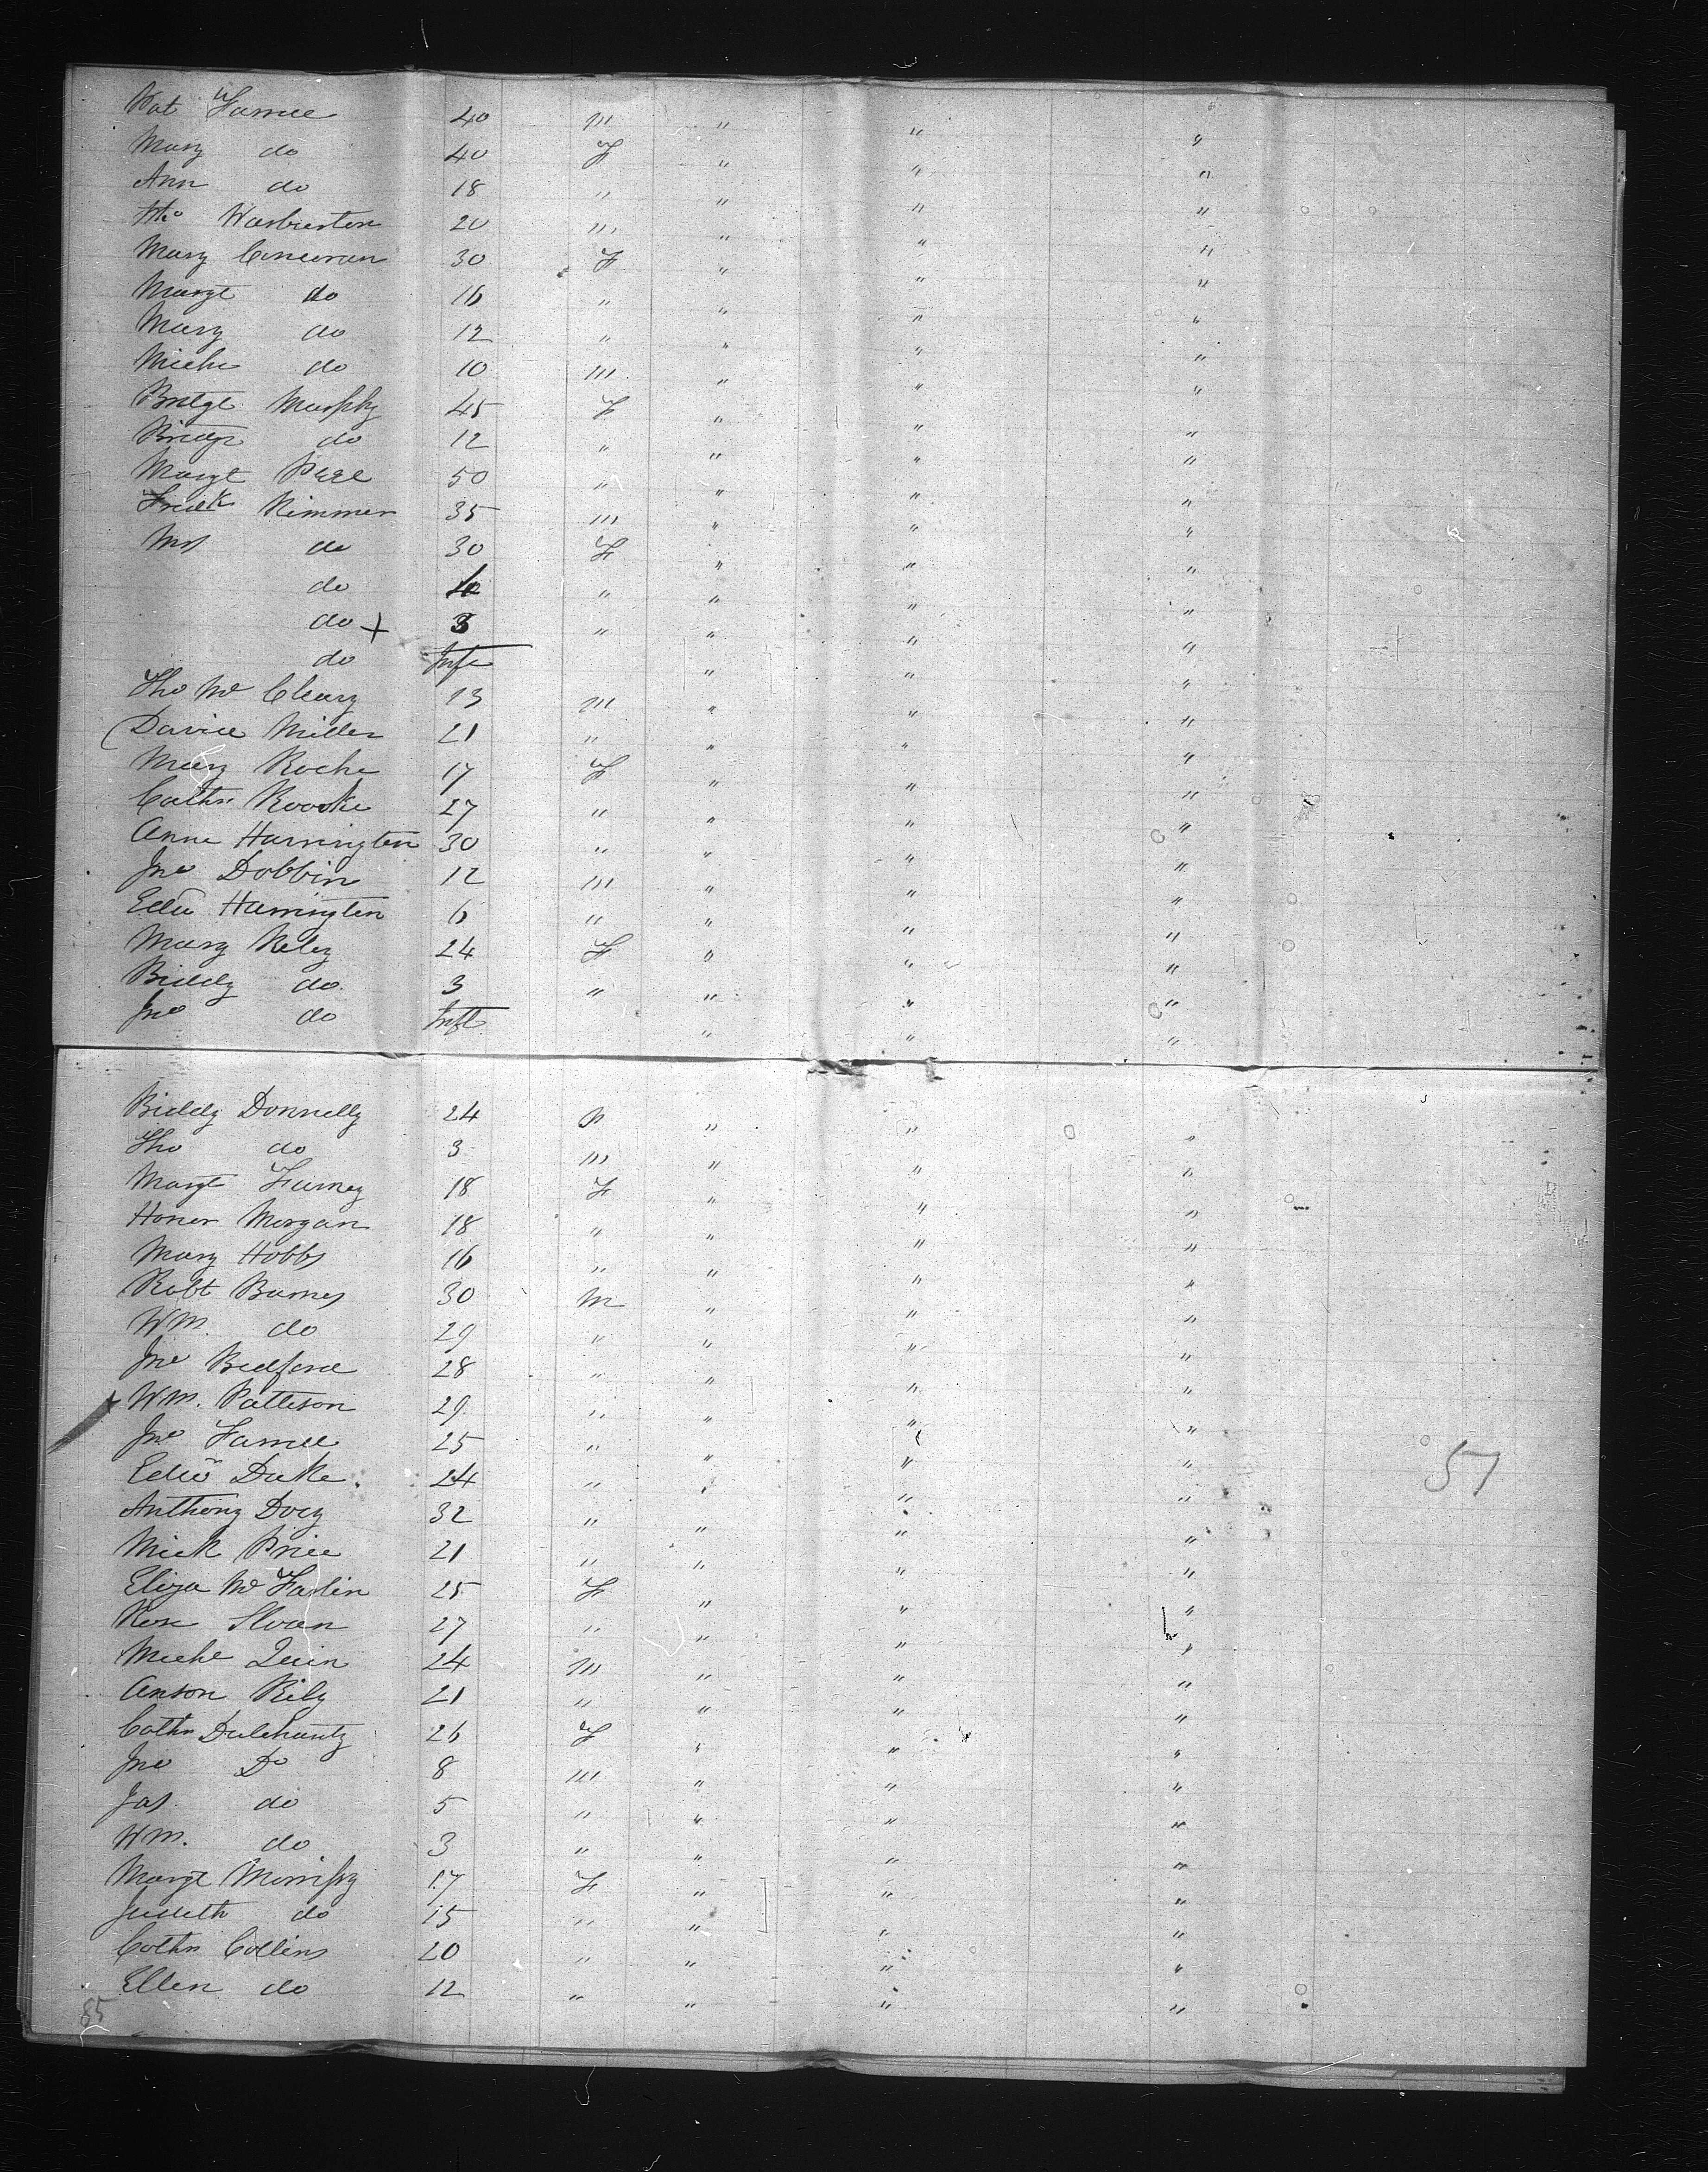 Pat Farrell 40 M " " "
Mary do 40 F " " "
Ann do 18 " " " "
Tho Warburton 20 M " " "
Mary Corcoran 30 F " " "
Margt do 16 " " " "
Mary do 12 " " " "
Michl do 10 M " " "
Bridgt Murphy 45 F " " "
Bridgt do 12 " " " "
Margt Peel 50 " " " "
Fredk Rimmer 35 M " " "
Mrs do 30 F " " "
do 4 " " " "
do + 3 " " " "
do Inft " " "
Tho Mc Cleary 13 M " " "
David Miller 21 " " " "
Mary Roche 17 F " " "
Cathn Roorke 27 " " " "
Anne Harrington 30 " " " "
Jno Dobbin 12 M " " "
Edw Harrington 6 " " " "
Mary Reley 24 F " " "
Biddy do 3 " " " "
Jno do Inft " " "
Biddy Donnelly 24 " " "
Tho do 3 M " " "
Margt Furney 18 F " " "
Honor Morgan 18 " " " "
Mary Hobbs 16 " " " "
Robt Barnes 30 M " " "
Wm. do 29 " " " "
Jno Bedford 28 " " " "
Wm. Patteson 29 " " " "
Jno Farrell 25 " " " "
Edwd Duke 24 " " " "
Anthony Doey 32 " " " "
Mick Price 21 " " " "
Eliza Mc Farlin 25 F " " "
Rose Sloan 27 " " " "
Michl Quin 24 M " " "
Anson Rily 21 " " " "
Cathn Dulehanty 26 F " " "
Jno Do 8 M " " "
Jas do 5 " " " "
Wm. do 3 " " " "
Margt Morrissy 17 F " " "
Judith do 15 " " " "
Cathn Collins 20 " " " "
Ellen do 12 " " " "
57
85